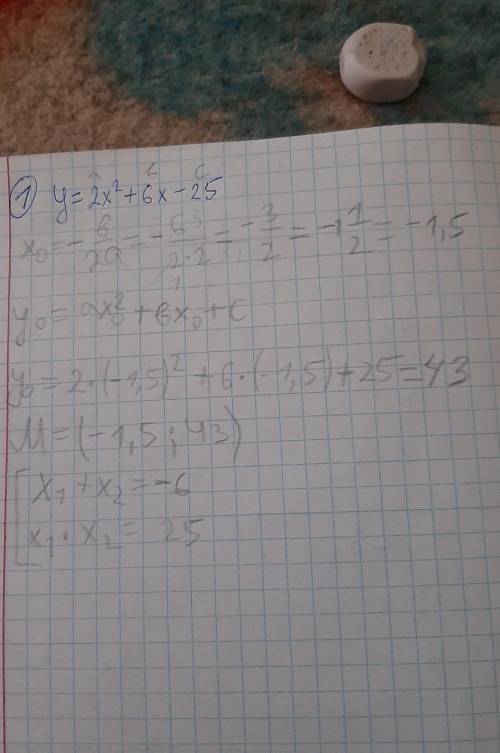 a в c
① y=2x²+6x-25
x₀=-в/2a=-6 3/2·2 1=-3/2=-1 1/2=-1,5
y₀=ax₀²+вx₀+c
y₀=2·(-1,5)²+6·(-1,5)+25=43
M=(-1,5;43)
[x₁+x₂=-6
x₁·x₂=25